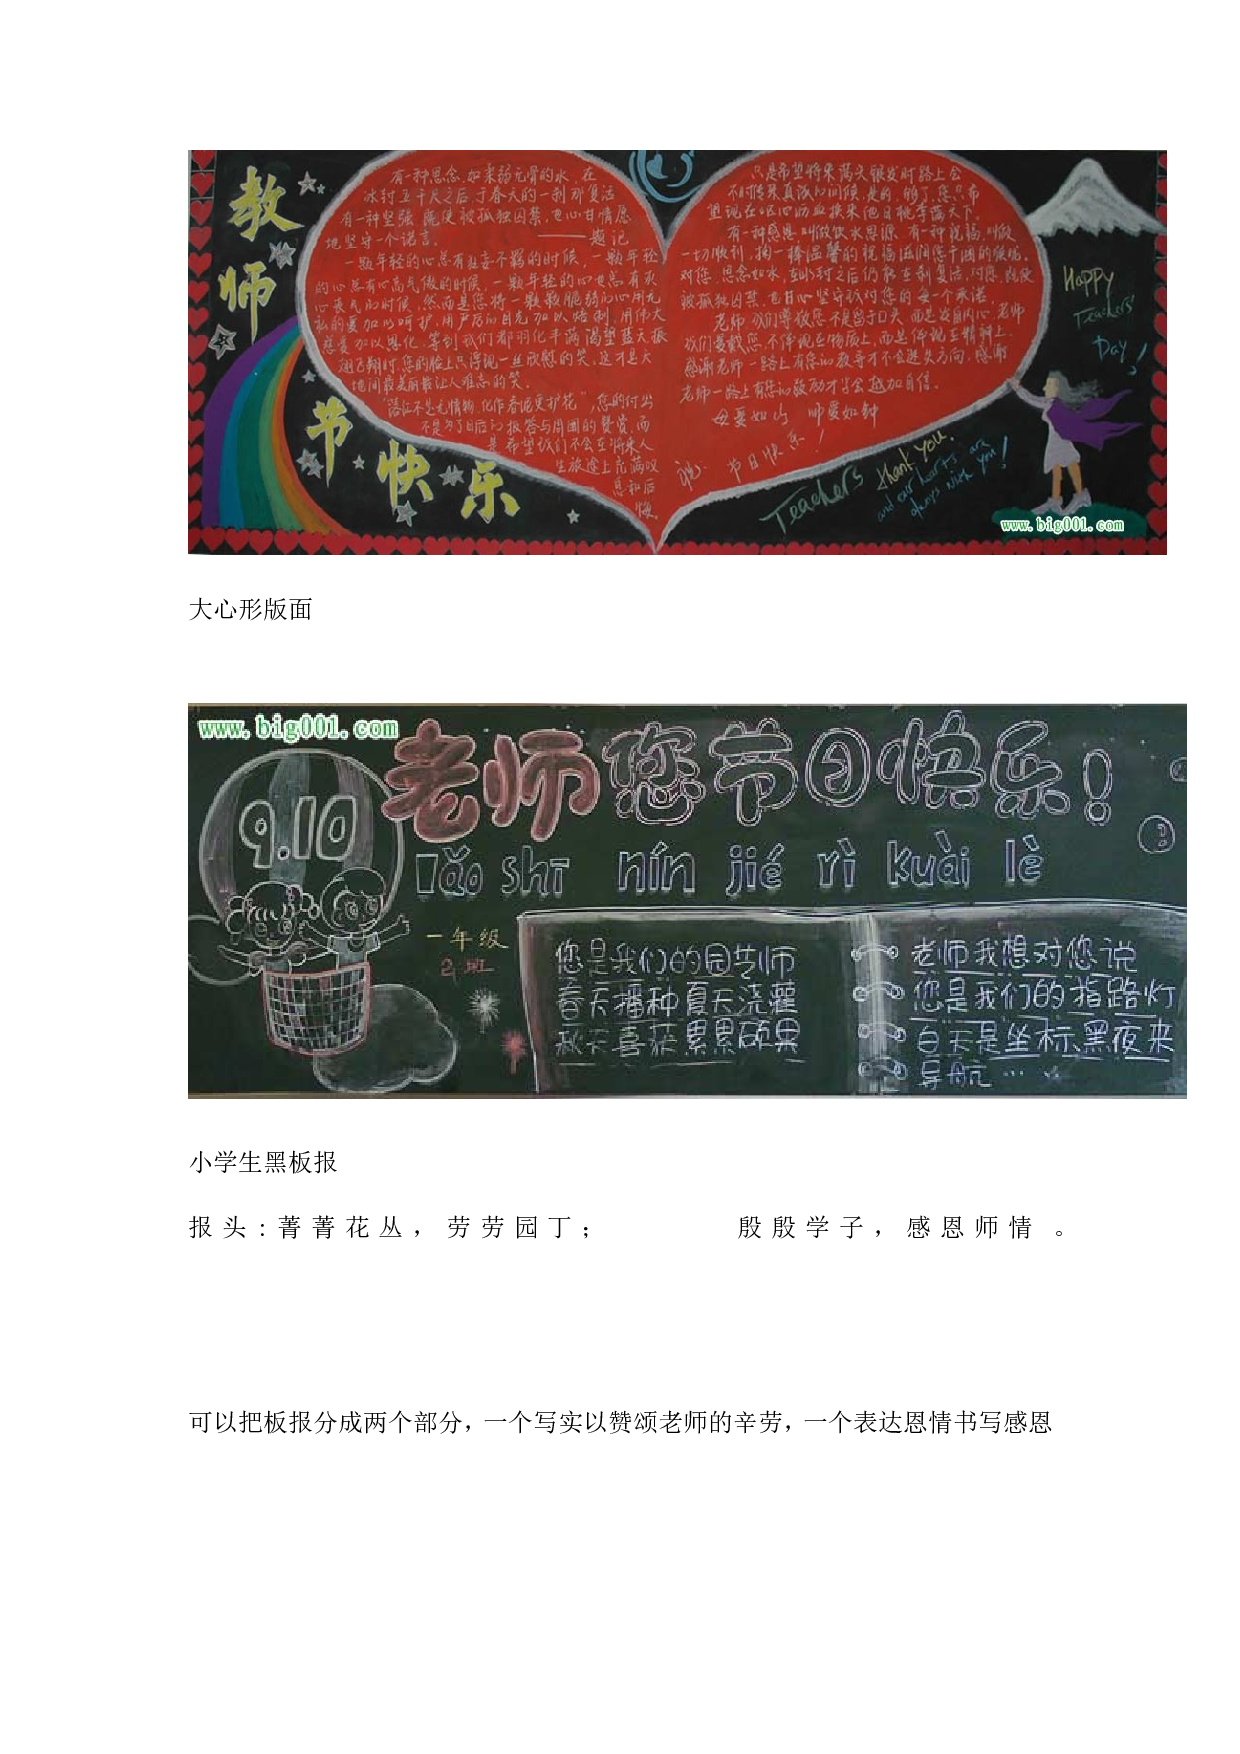 教师节快乐
有一种思念,如来弱无骨的水,在
冰封五千尺之后,于春天的一刹那复活
有一种坚强,既使被孤独囚禁,也心甘情愿
地坚守一个诺言。 ——题记
一颗年轻的心总有狂妄不羁的时候,一颗年轻
的心总有心高气傲的时候,一颗年轻的心也总有灰
心丧气的时候,然而是您将一颗颗脆弱的心用无
私的爱加以呵护,用严厉的目光加以培剂,用伟大
慈爱加以恩化,等到我们都羽化丰满渴望蓝天振
翅飞翔时,您的脸上只浮现一丝欣慰的笑,这才是大
地间最美丽最让人难忘的笑。
"落红不是无情物,化作春泥更护花",您的付出
不是为了日后的报答与周围的赞赏,而
是希望我们不会在将来人
生旅途上充满叹
息和后
悔。
只是希望将来满头银发时路上会
不时传来真诚的问候,是的,够了,您只希
望现在呕心沥血换来他日桃李满天下。
有一种感恩,叫做饮水思源,有一种祝福,叫做
一切顺利,掬一捧温馨的祝福滋润您干涸的喉咙。
对您,思念如水,在冰封之后仍能在刹复活,对您,既使
被孤独囚禁,也甘心坚守我对您的每一个承诺。
老师,我们尊敬您,不是留于口头,而是发自内心,老师
我们爱戴您,不体现在物质上,而是体现在精神上。
感谢老师一路上有您的教导才不会迷失方向,感谢
老师一路上有您的激励才学会越加自信。
母爱如山 师爱如钟
祝: 节日快乐!
Happy
Teachers'
Day!
Teachers
thank you.
and our hearts are
always with you!
www.big001.com
大心形版面
www.big001.com
老师您节日快乐!
9.10
lǎo shī nín jié rì kuài lè
一年级
2班
您是我们的园艺师
春天播种夏天浇灌
秋天喜获累累硕果
老师我想对您说
您是我们的指路灯
白天是坐标黑夜来
导航……
小学生黑板报
报头:菁菁花丛,劳劳园丁; 殷殷学子,感恩师情 。
可以把板报分成两个部分,一个写实以赞颂老师的辛劳,一个表达恩情书写感恩